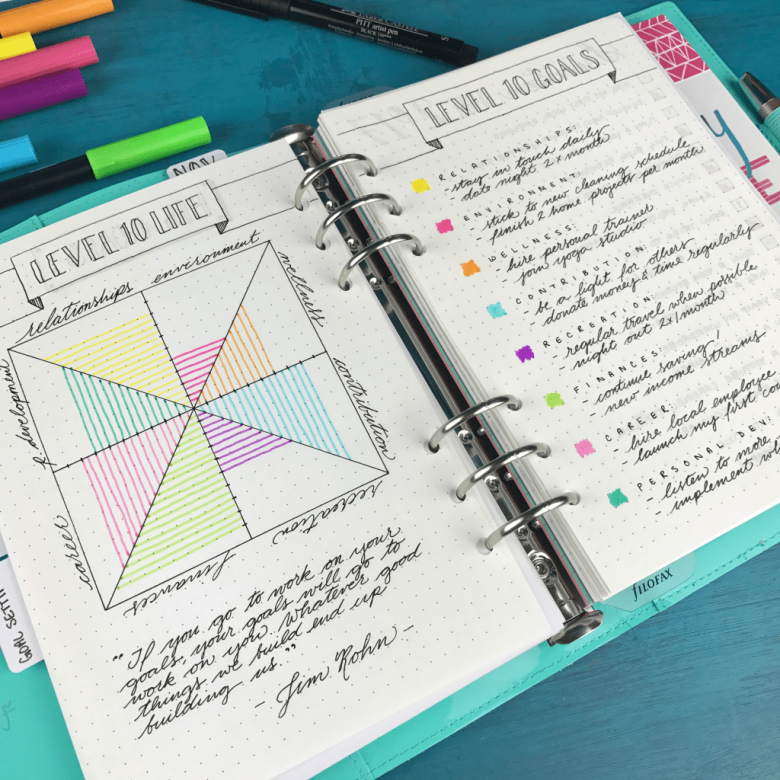 FABER-CASTELL
PITT artist pen
BLACK
S
NOV
LEVEL 10 LIFE
relationships
environment
wellness
contribution
recreation
finances
career
p. development
"If you go to work on your
goals, your goals will go to
work on you. Whatever good
things we build end up
building us."
- Jim Rohn -
GOAL SETTI
LEVEL 10 GOALS
RELATIONSHIPS:
- stay in touch daily
date night 2x month
ENVIRONMENT:
- stick to new cleaning schedule
finish 2 home projects per month
WELLNESS:
- hire personal trainer
join yoga studio
CONTRIBUTION:
- be a light for others
- donate money & time regularly
RECREATION:
- regular travel when possible
- night out 2x/month
FINANCES:
- continue saving!
- new income streams
CAREER:
- hire local employee
- launch my first
PERSONAL DEV
- listen to more
implement
FILOFAX